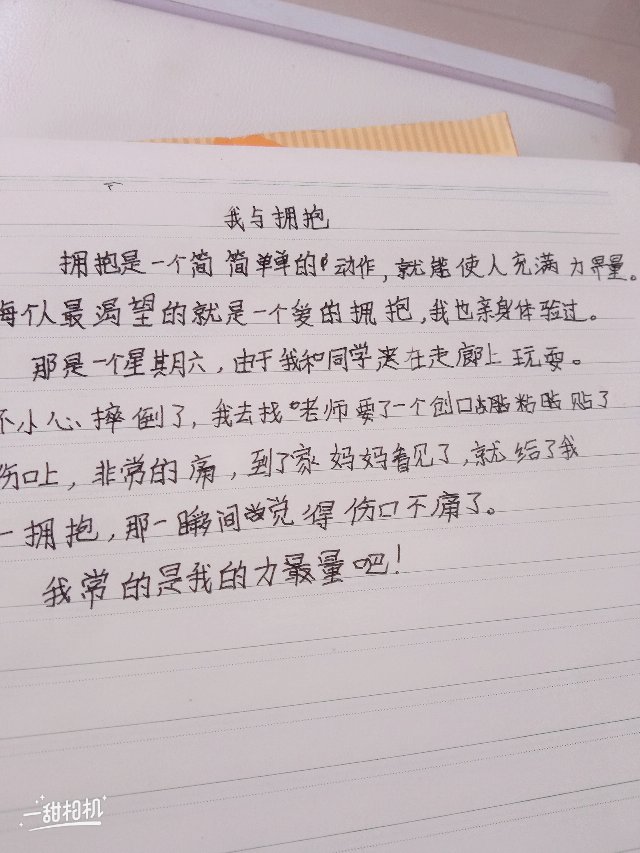 我与拥抱
拥抱是一个简简单单的动作,就能使人充满力量。
每个人最渴望的就是一个爱的拥抱,我也亲身体验过。
那是一个星其月六,由于我和同学走在走廊上玩耍。
不小心摔倒了,我去找老师要了一个创口贴粘贴了
伤口上,非常的痛,到了家妈妈看见了,就给了我
一拥抱,那一瞬间觉得伤口不痛了。
我常的是我的力最量吧!
一甜相机